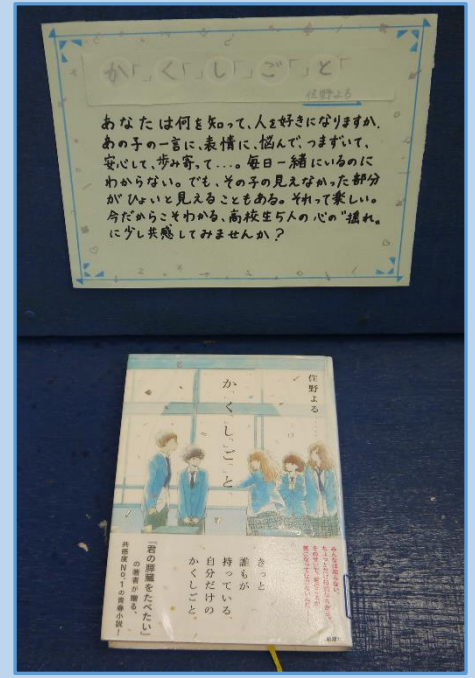 か「」く「」し「」ご「」と「
住野よる
あなたは何を知って、人を好きになりますか。
あの子の一言に、表情に、悩んで、つまずいて、
安心して、歩み寄って…。毎日一緒にいるのに
わからない。でも、その子の見えなかった部分
がひょいと見えることもある。それって楽しい。
今だからこそわかる、高校生5人の心の〝揺れ〟
に少し共感してみませんか？
住野よる
か「」く「」し「」ご「」と「
きっと
誰もが
持っている、
自分だけの
かくしごと。
『君の膵臓をたべたい』
の著者が贈る、
共感度No.1の青春小説！